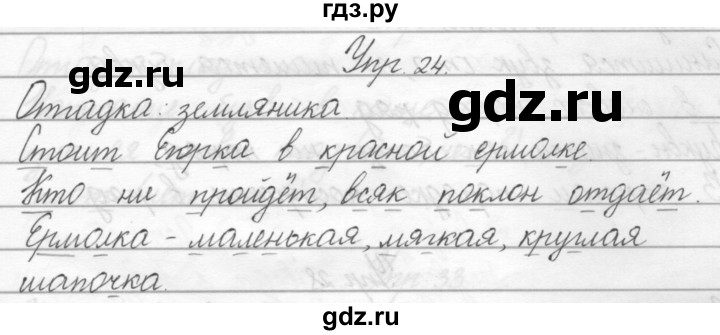 гдз.ру
Упр. 24.
gdz.ru
gdz.ru
Отгадка: земляника
Стоит Егорка в красной ермолке.
Кто ни пройдёт, всяк поклон отдаёт.
Ермолка - маленькая, мягкая, круглая
шапочка.
gdz.ru
gdz.ru
gdz.ru